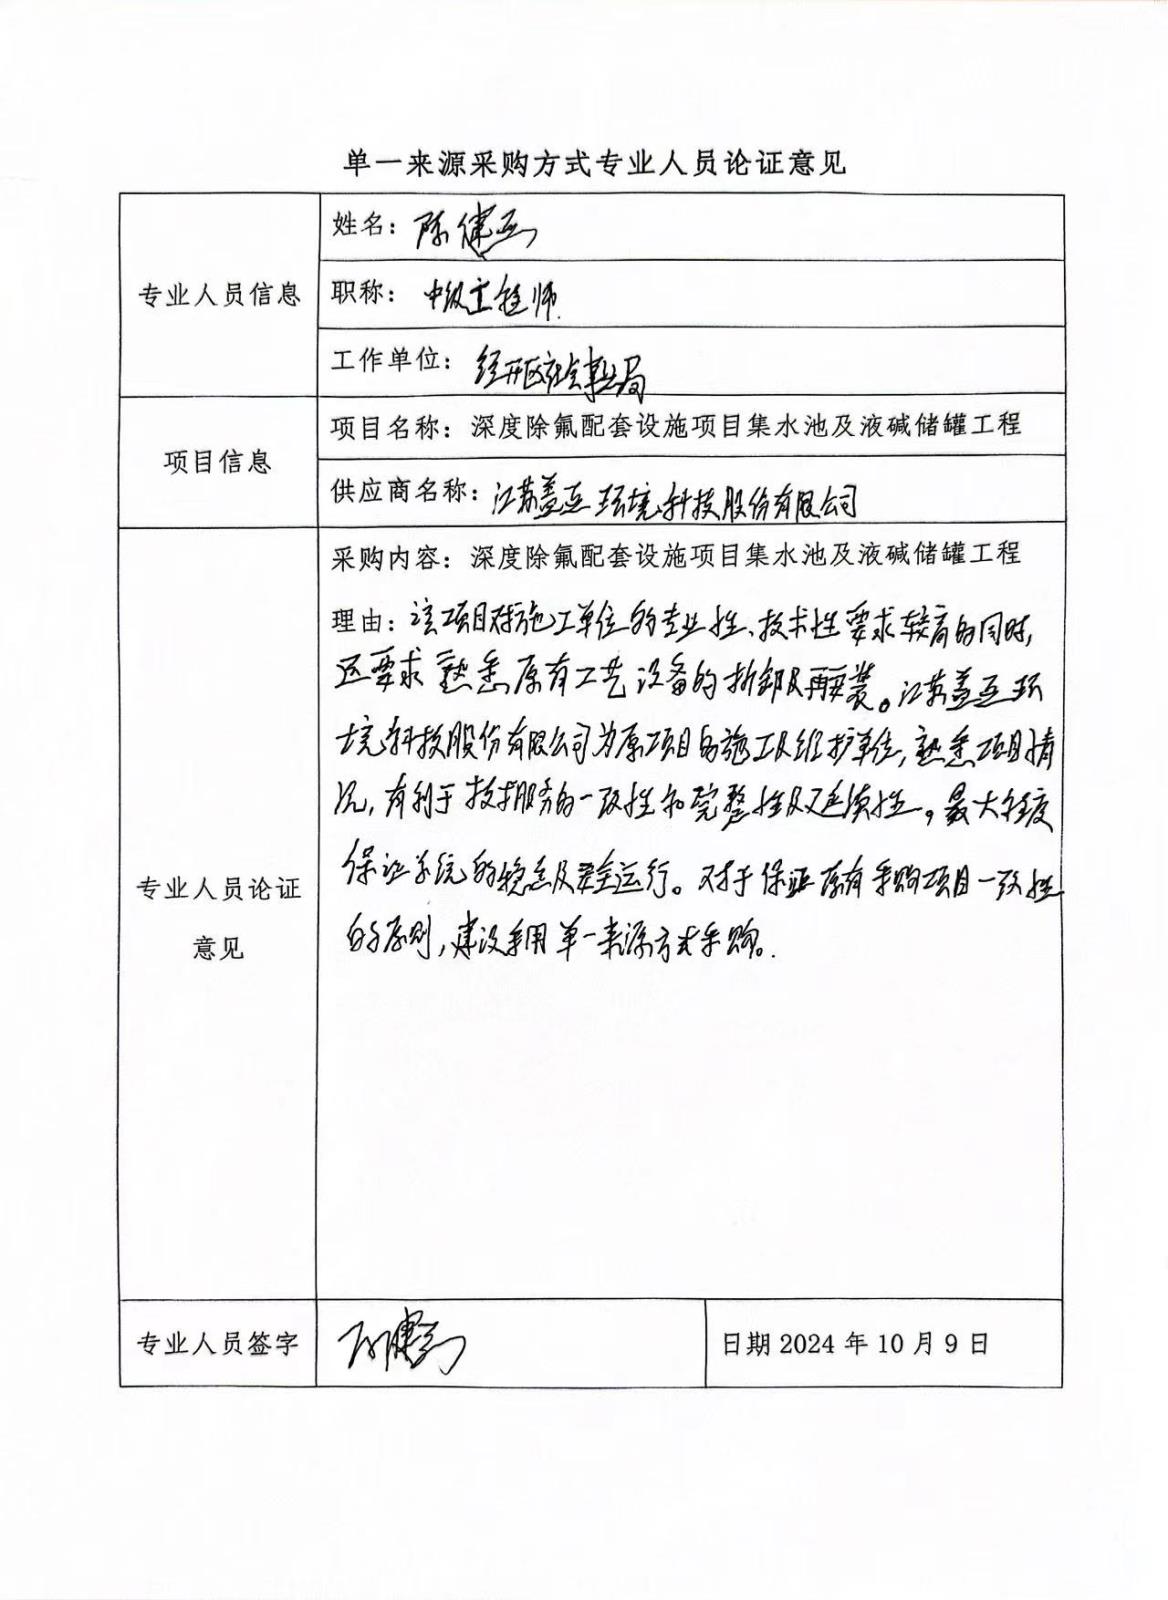 单一来源采购方式专业人员论证意见
专业人员信息
姓名：陈健
职称：中级工程师
工作单位：经开区社会事业局
项目信息
项目名称：深度除氟配套设施项目集水池及液碱储罐工程
供应商名称：江苏盖亚环境科技股份有限公司
专业人员论证
意见
采购内容：深度除氟配套设施项目集水池及液碱储罐工程
理由：该项目对施工单位的专业性、技术性要求较高的同时，
还要求熟悉原有工艺设备的拆卸及再安装。江苏盖亚环
境科技股份有限公司为原项目的施工及维护单位，熟悉项目情
况，有利于技术服务的一致性和完整性及延续性。最大程度
保证系统的稳定及安全运行。对于保证原有采购项目一致性
的原则，建议采用单一来源方式采购。
专业人员签字
日期 2024 年 10 月 9 日